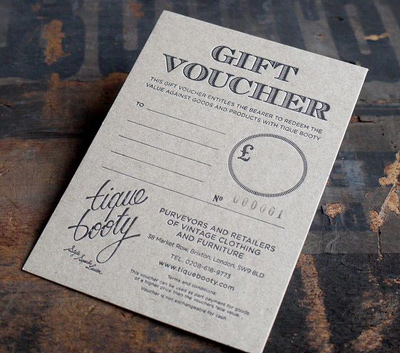 GIFT
VOUCHER
THIS GIFT VOUCHER ENTITLES THE BEARER TO REDEEM THE
VALUE AGAINST GOODS AND PRODUCTS WITH TIQUE BOOTY
TO
£
Nº 000061
tique
booty
PURVEYORS AND RETAILERS
OF VINTAGE CLOTHING
AND FURNITURE
38 Market Row, Brixton, London, SW9 8LD
TEL. 0208-616-9773
www.tiquebooty.com
Terms and conditions:
This voucher can be used as part payment for goods
of a higher price than the vouchers face value.
Voucher is not exchangeable for cash.